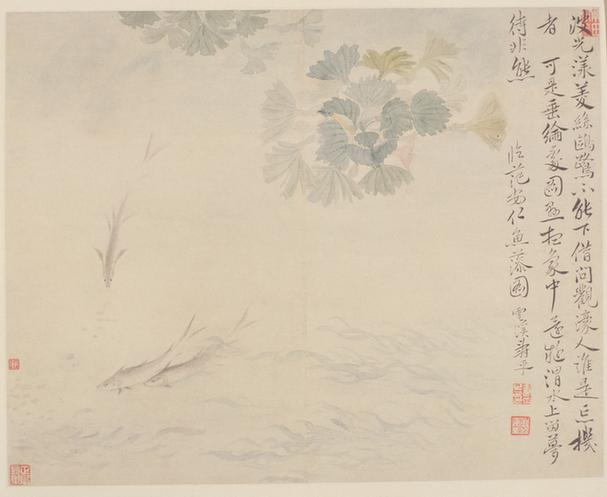 波光漾菱絲鷗鷺不能下借問觀濠人誰是忘機
者 可是垂綸處圖想象中還疑渭水上留夢
待非熊
臨范安仁魚藻圖 雲溪壽平